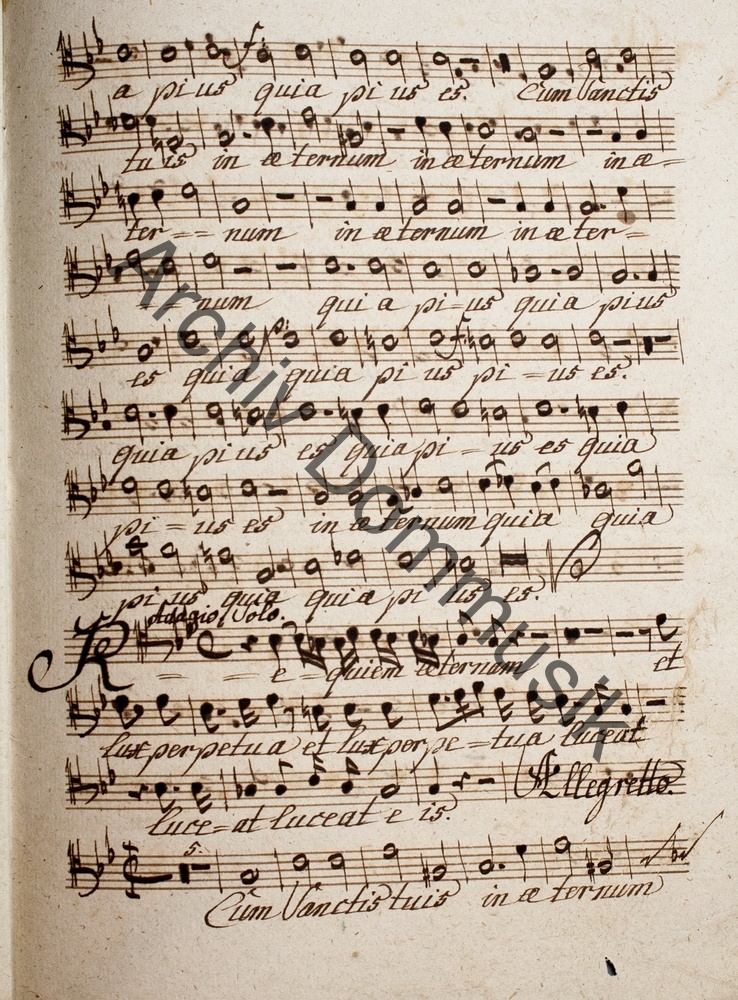 f.
a pi us quia pi us es. Cum Sanctis
tu is in æ ternum in æ ternum in æ=
ter == num in æ ternum in æ ter=
= num qui a pi=us quia pius
p. f.
es quia quia pi us pi = us es.
quia pi us es quia pi = us es quia
pi = us es in æ ternum quia quia
pi us quia quia pi us es.
Adagio Solo.
R - - e = quiem æternam et
lux perpetua et lux perpe=tua luceat
Allegretto.
luce=at luceat e is.
5.
Cum Sanctis tuis in æ ternum
Archiv Dommusik